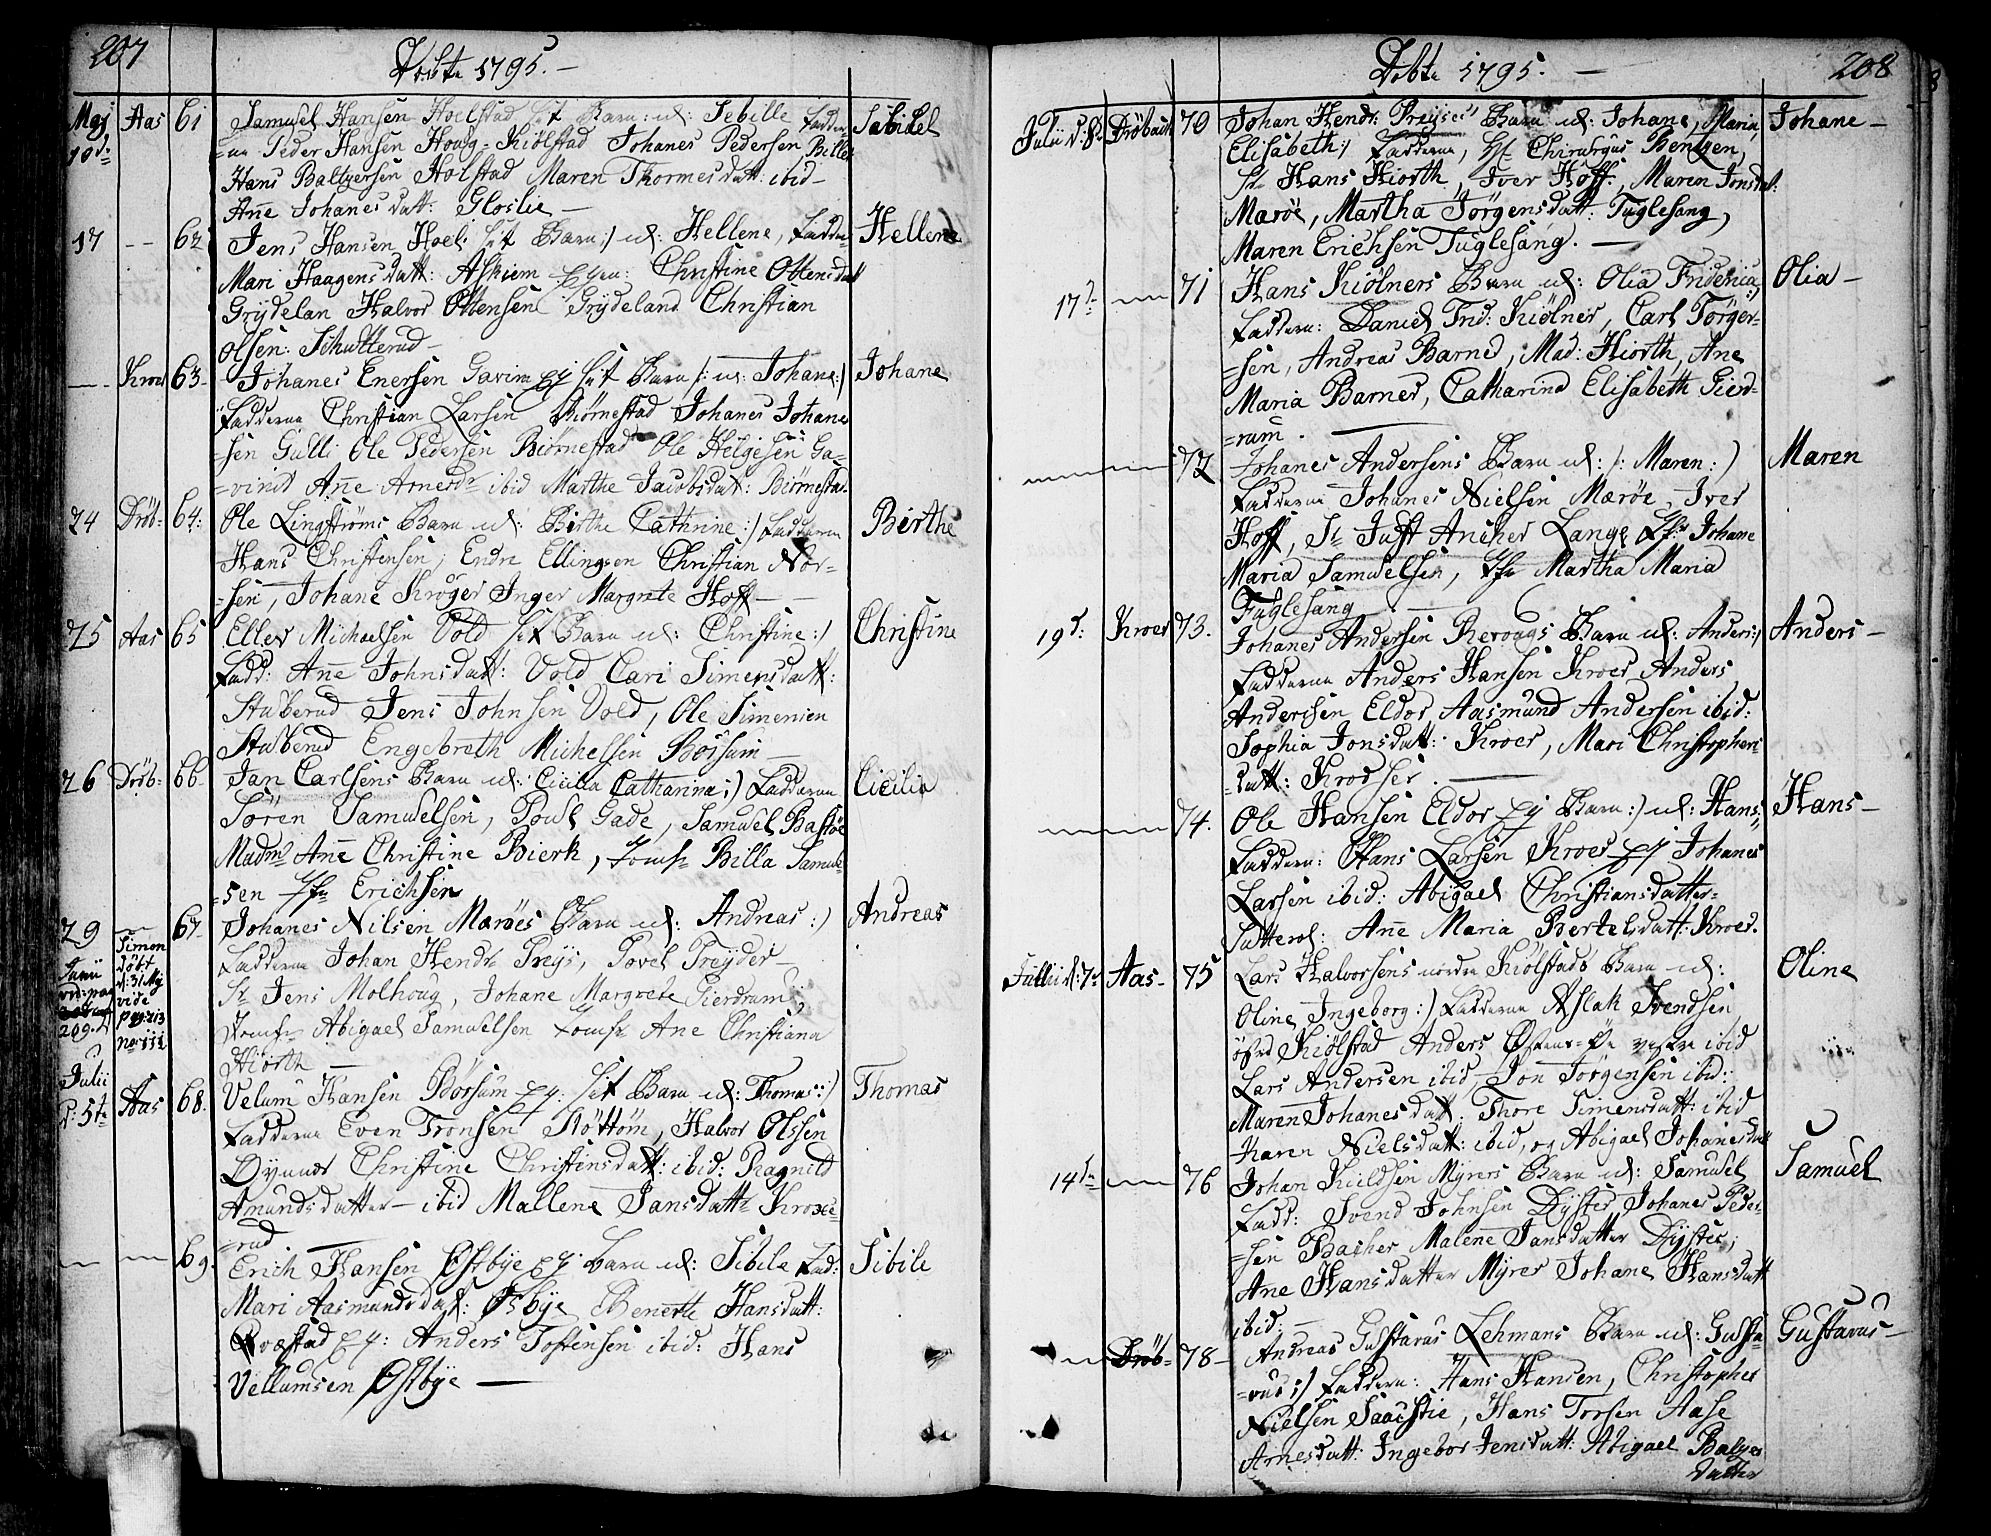 207
Döbte 1795. —
Maj 10d: Aas 61 Samuel Hansen Hoelstad Barn: n: Sebille Fadder- Sibilel
=ne Peder Hansen Houg- Kiölstad Johanes Pedersen Bille
Hans Baltzersen Holstad Maren Thormesdatt: ibid-
Añe Johanesdatt: Gloslie —
17 -- 62 Jens Hansen Hoel Barn:/ n: Hellene, Fadd: Hellene
Mari Haagensdatt: Askiem Christine Ottensdatt
Grydelan Halvor Ottensen Grydeland Christian
Olsen: Schutterud —
— Kroer 63- Johanes Enersen Gavin Ey Barn /: n: Johane:/ Johane
Fadderne Christian Larsen Biörnestad Johanes Johane
=sen Gulli Ole Pedersen Biörnestad Ole Helgesen Ga-
=vind Añe Arnesd: ibid Marthe Jacobsdat: Biörnestad
24 Dröb- 64: Ole Lingströms Barn n: Birthe Cathrine:/ Fadderne Birthe
Hans Christensen, Endre Ellingsen Christian Nor-
=sen, Johane Kröger Inger Margrete Hoff —
25 Aas 65 Eller Michaelsen Vold Barn n: Christine:/ Christine
Fadd: Añe Johnsdatt: Vold Cari Simensdatt:
Stuberud Jens Johnsen Vold, Ole Simensen
Stuberud Engebreth Michelsen Börsum —
26 Dröb- 66- Jan Carlsens Barn n: Cicilia Catharina:/ Fadderne Cicilia
Sören Samuelsen, Poul Gade, Samuel Bastöe
Madm: Añe Christine Bierk, Jomfr Billa Samuel
=sen Jfr Erichsen
29 — 67- Johanes Nilsen Maröes Barn n: Andreas:/ Andreas
Fadderne Johan Hendr: Preys, Povel Treyder —
Sr Jens Molhoug, Johane Margrete Gierdrum,
Jomfr Abigael Samuelsen Jomfr Ane Christiana
Hiorth —
Simon
döbt
d: 31 My
vide
pag: 213
no: 111
209.
Julii d: 5te Aas 68. Velum Hansen Börsum Ey: Barn n: Thomas:/ Thomas
Fadderne Even Tronsen Stöttöm, Halvor Olssen
Dynner Christine Christinsdatt: ibid: Ragnild
Amundsdatter — ibid Mallene Jansdattr Kroxe-
=rud —
— — 69. Erich Hansen Østbye Ey Barn n: Sibile Fad: Sibile
Mari Aasmundsdat: Østbye Benerte Hansdatt:
Qvæstad Ey: Anders Toftensen ibid: Hans
Vellumsen Østbye —
Döbte 1795. —
208
Julii d: 8d Dröback 70 Johan Hendr: Preyses Barn n: Johane, Maria Johane —
Elisabeth:/ Fadderne, Hr Chirurgus Bentzen,
Sr Hans Hiorth, Iver Hoff, Maren Jonsdat:
Maröe, Martha Jörgensdatt: Fuglesang,
Maren Erichsen Fuglesang. —
17d — 71 Hans Kiölners Barn n: Olia Friderica:/ Olia —
Fadderne: Daniel Frid: Kiölner, Carl Törger-
=sen, Andreas Barned, Mad: Hiorth, Ane
Maria Barner, Catharina Elisabeth Gierd-
=rum. —
— 72 Johanes Andersens Barn n: /: Maren:/ Maren
Fadderne Johanes Nielsen Maröe, Iver
Hoff, Sr Just Ancher Lange Jfr: Johane
Maria Samuelsen, Jfr Martha Maria
Fuglesang —
19d: Kroer 73. Johanes Andersen Revougs Barn n: Anders:/ Anders —
Fadderne Anders Hansen Kroer Anders
Andersen Eldor, Aasmund Andersen ibid:
Sophia Jonsdatt: Kroer, Mari Christophers
=datt: Krodser. —
— 74. Ole Hansen Eldor Ey Barn:/ n: Hans: Hans —
Fadderne: Hans Larsen Kroer Ey Johanes
Larsen ibid: Abigael Christiansdatter-
Sutterol: Añe Maria Bertelsdatt: Kroer.
Jullii d: 7d Aas- 75 Lars Halvorsens nordre Kiölstads Barn n: Oline
Oline Ingeborg:/ Fadderne Aslak Svendsen
öfre Kiölstad Anders vestre ibid
Lars Andersen ibid, Jon Jörgensen ibid:
Maren Johanesdatt. Thore Simensdatt: ibid
Karen Nielsdatt: ibid, og Abigael Johanesdat
14d — 76 Johan Kieldsen Myrers Barn n: Samuel Samuel
Fadd: Svend Johnsen Dyster, Johanes Peder-
=sen Bacher Malene Jansdatter Dyster,
Ane Hansdatter Myrer Johane Hansdatt
ibid: —
— Dröb- 78- Andreas Gustavus Lehmans Barn n: Gusta Gustavus —
=vus:/ Fadderne: Hans Hansen, Christopher
Nielsen Saaestie, Hans Torsen Aase
Arnesdatt: Ingebor Jensdatt: Abigael Baltzer
datter